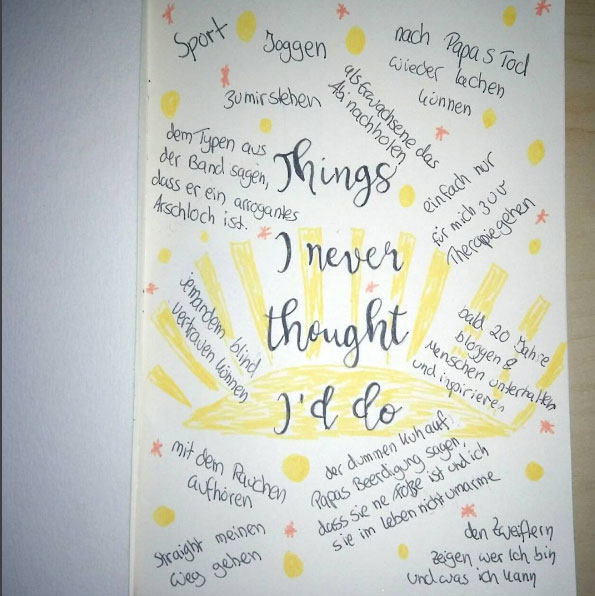 Sport
Joggen
nach Papas Tod
wieder lachen
können
zu mir stehen
als Erwachsene das
Abi nachholen
dem Typen aus
der Band sagen,
dass er ein arrogantes
Arschloch ist.
einfach nur
für mich zur
Therapie gehen
Things
I never
thought
I'd do
jemandem blind
vertrauen können
bald 20 Jahre
bloggen &
Menschen unterhalten
und inspirieren
mit dem Rauchen
aufhören
der dummen Kuh auf
Papas Beerdigung sagen,
dass sie ne Fotze ist und ich
sie im Leben nicht umarme
straight meinen
Weg gehen
den Zweiflern
zeigen wer ich bin
und was ich kann